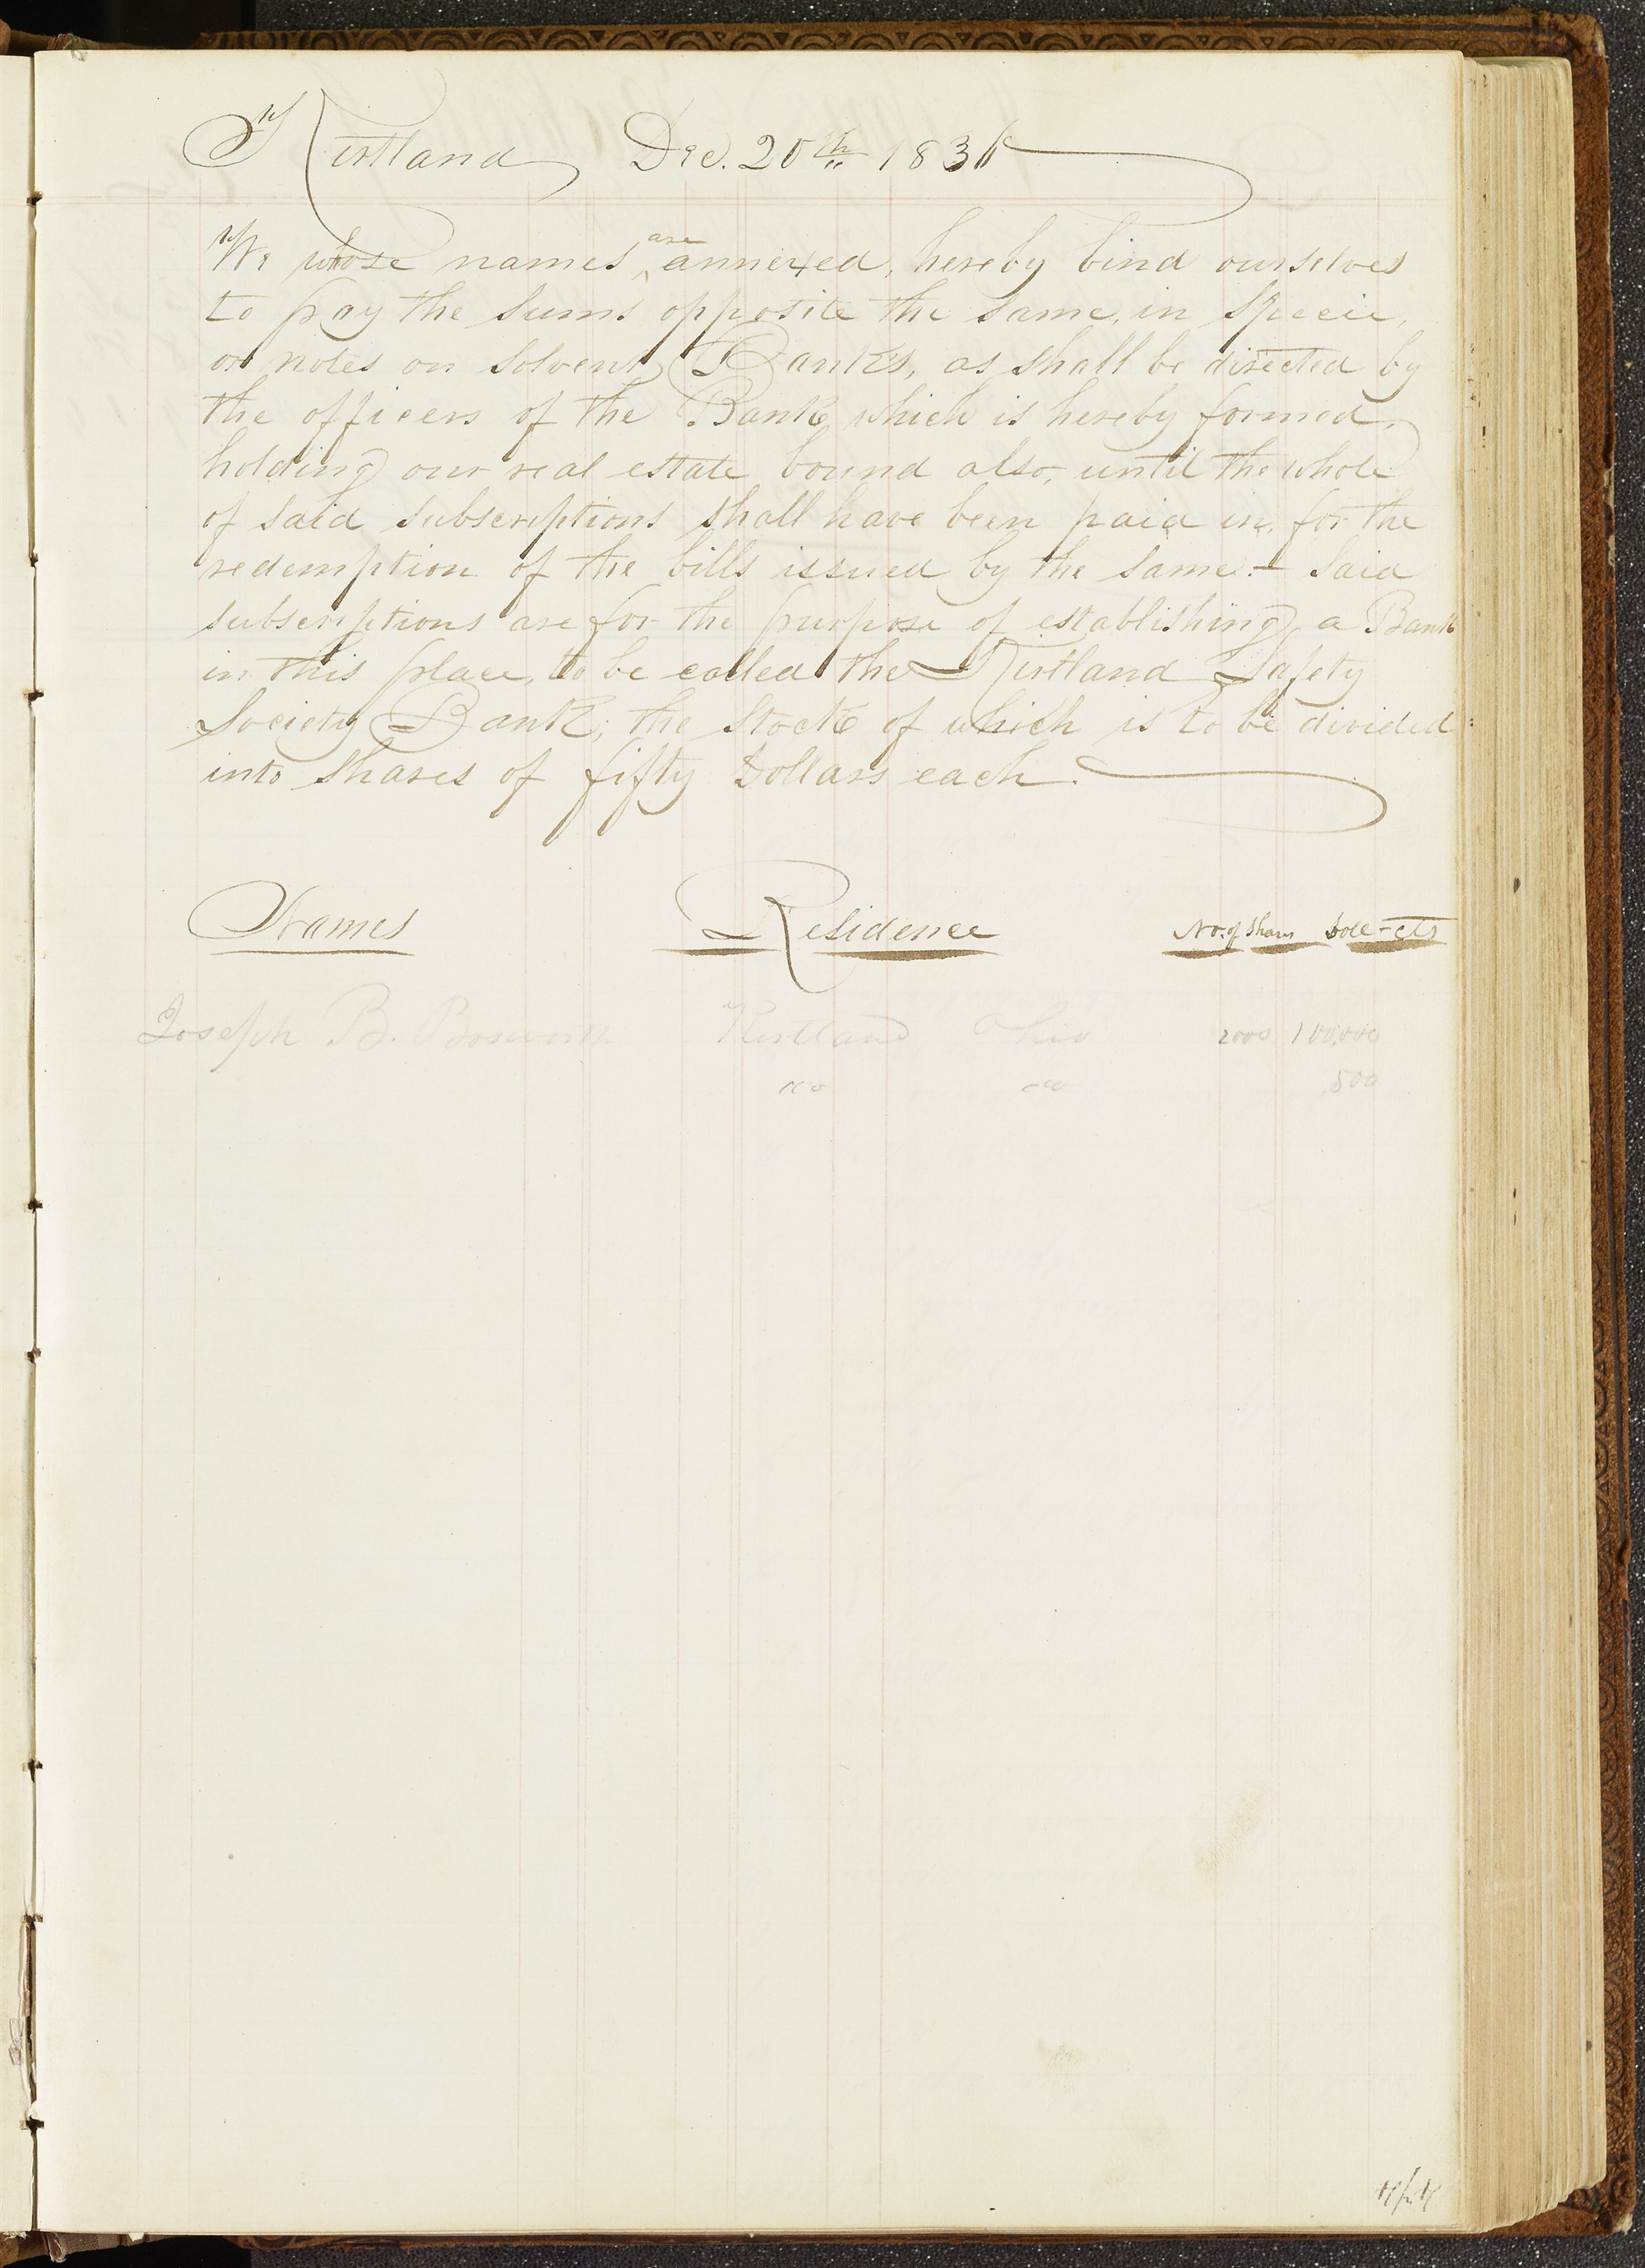 Kirtland Dec. 20th 1836
We whose names are annexed, hereby bind ourselves
to pay the sums opposite the same, in Specie,
or notes on solvent Banks, as shall be directed by
the officers of the Bank which is hereby formed,
holding our real estate bound also, until the whole
of said subscriptions shall have been paid in, for the
redemption of the bills issued by the same.– Said
subscriptions are for the purpose of establishing a Bank
in this place, to be called the Kirtland Safety
Society Bank; the Stock of which is to be divided
into Shares of fifty Dollars each.
Names Residence No. of Shares Doll–cts
Joseph B. Bosworth Kirtland Ohio 2000 100,000
do do 500